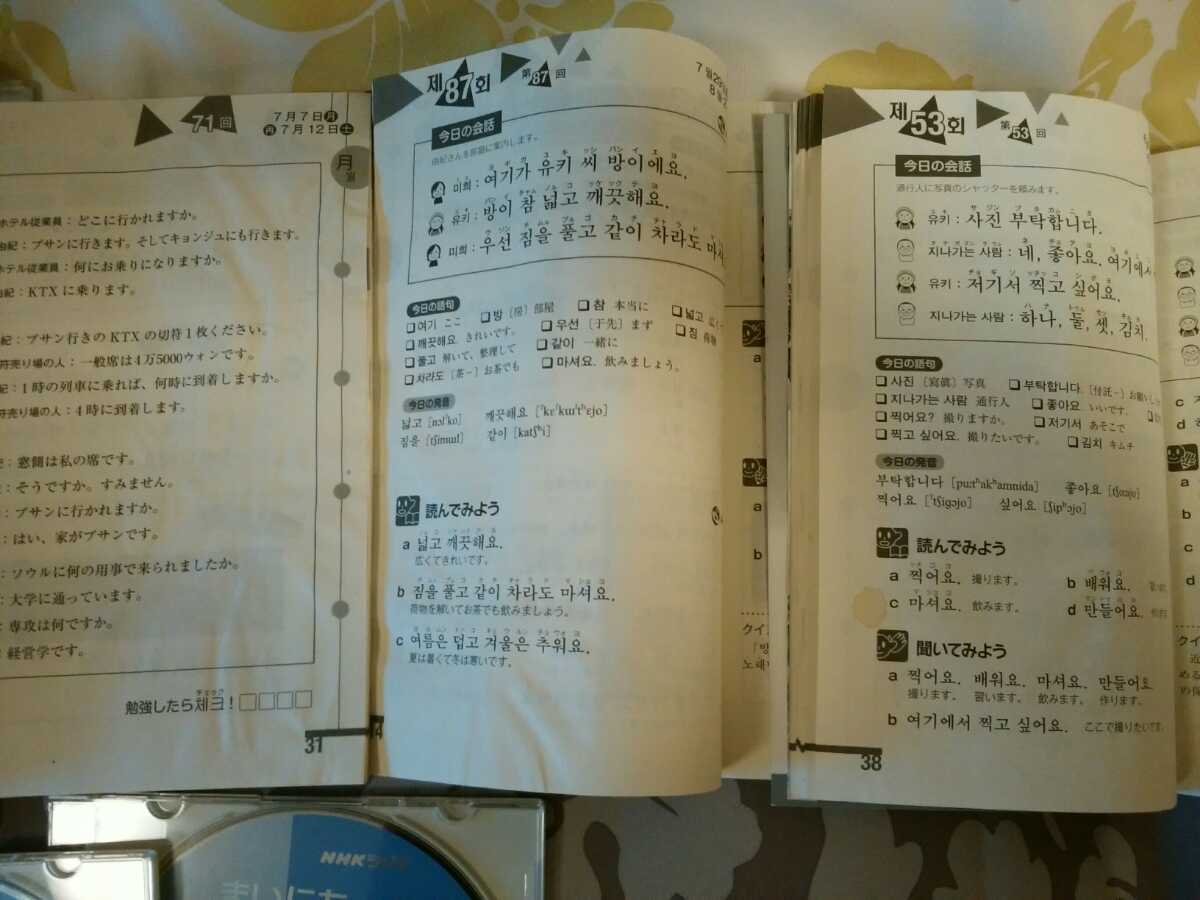 71回
7月7日月
再7月12日土
月
월
ホテル従業員：どこに行かれますか。
由紀：プサンに行きます。そしてキョンジュにも行きます。
ホテル従業員：何にお乗りになりますか。
由紀：KTXに乗ります。
紀：プサン行きのKTXの切符1枚ください。
符売り場の人：一般席は4万5000ウォンです。
紀：1時の列車に乗れば、何時に到着しますか。
符売り場の人：4時に到着します。
：窓側は私の席です。
：そうですか。すみません。
：プサンに行かれますか。
：はい、家がプサンです。
：ソウルに何の用事で来られましたか。
：大学に通っています。
：専攻は何ですか。
：経営学です。
勉強したら체크！□□□□
31
제87회
第87回
今日の会話
由紀さんを部屋に案内します。
미희：여기가 유키 씨 방이에요.
유키：방이 참 넓고 깨끗해요.
미희：우선 짐을 풀고 같이 차라도 마셔
今日の語句
□여기 ここ □방〔房〕部屋 □참 本当に □넓고 広く
□깨끗해요. きれいです。 □우선〔于先〕まず □짐 荷物
□풀고 解いて、整理して □같이 一緒に
□차라도〔茶－〕お茶でも □마셔요. 飲みましょう。
今日の発音
넓고 깨끗해요
짐을 같이
読んでみよう
a 넓고 깨끗해요.
広くてきれいです。
b 짐을 풀고 같이 차라도 마셔요.
荷物を解いてお茶でも飲みましょう。
c 여름은 덥고 겨울은 추워요.
夏は暑くて冬は寒いです。
제53회
第53回
今日の会話
通行人に写真のシャッターを頼みます。
유키：사진 부탁합니다.
지나가는 사람：네, 좋아요. 여기에서
유키：저기서 찍고 싶어요.
지나가는 사람：하나, 둘, 셋, 김치.
今日の語句
□사진〔寫眞〕写真 □부탁합니다.〔付託－〕お願いし
□지나가는 사람 通行人 □좋아요. いいです。
□찍어요? 撮りますか。 □저기서 あそこで
□찍고 싶어요. 撮りたいです。 □김치 キムチ
今日の発音
부탁합니다 [puːtʰakʰamnida] 좋아요
찍어요 싶어요
読んでみよう
a 찍어요. 撮ります。 b 배워요.
c 마셔요. 飲みます。 d 만들어요.
聞いてみよう
a 찍어요. 배워요. 마셔요. 만들어요
撮ります。 習います。 飲みます。 作ります。
b 여기에서 찍고 싶어요. ここで撮りたいです。
38
クイ
「방
노래방
NHK
まいにち